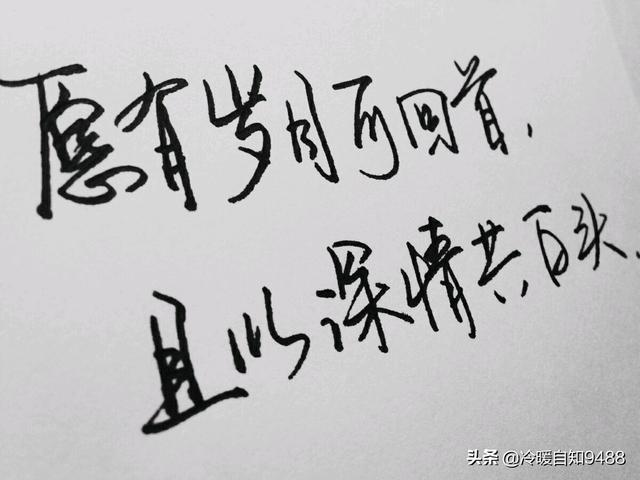 愿有岁月可回首,
且以深情共白头.
头条 @冷暖自知9488